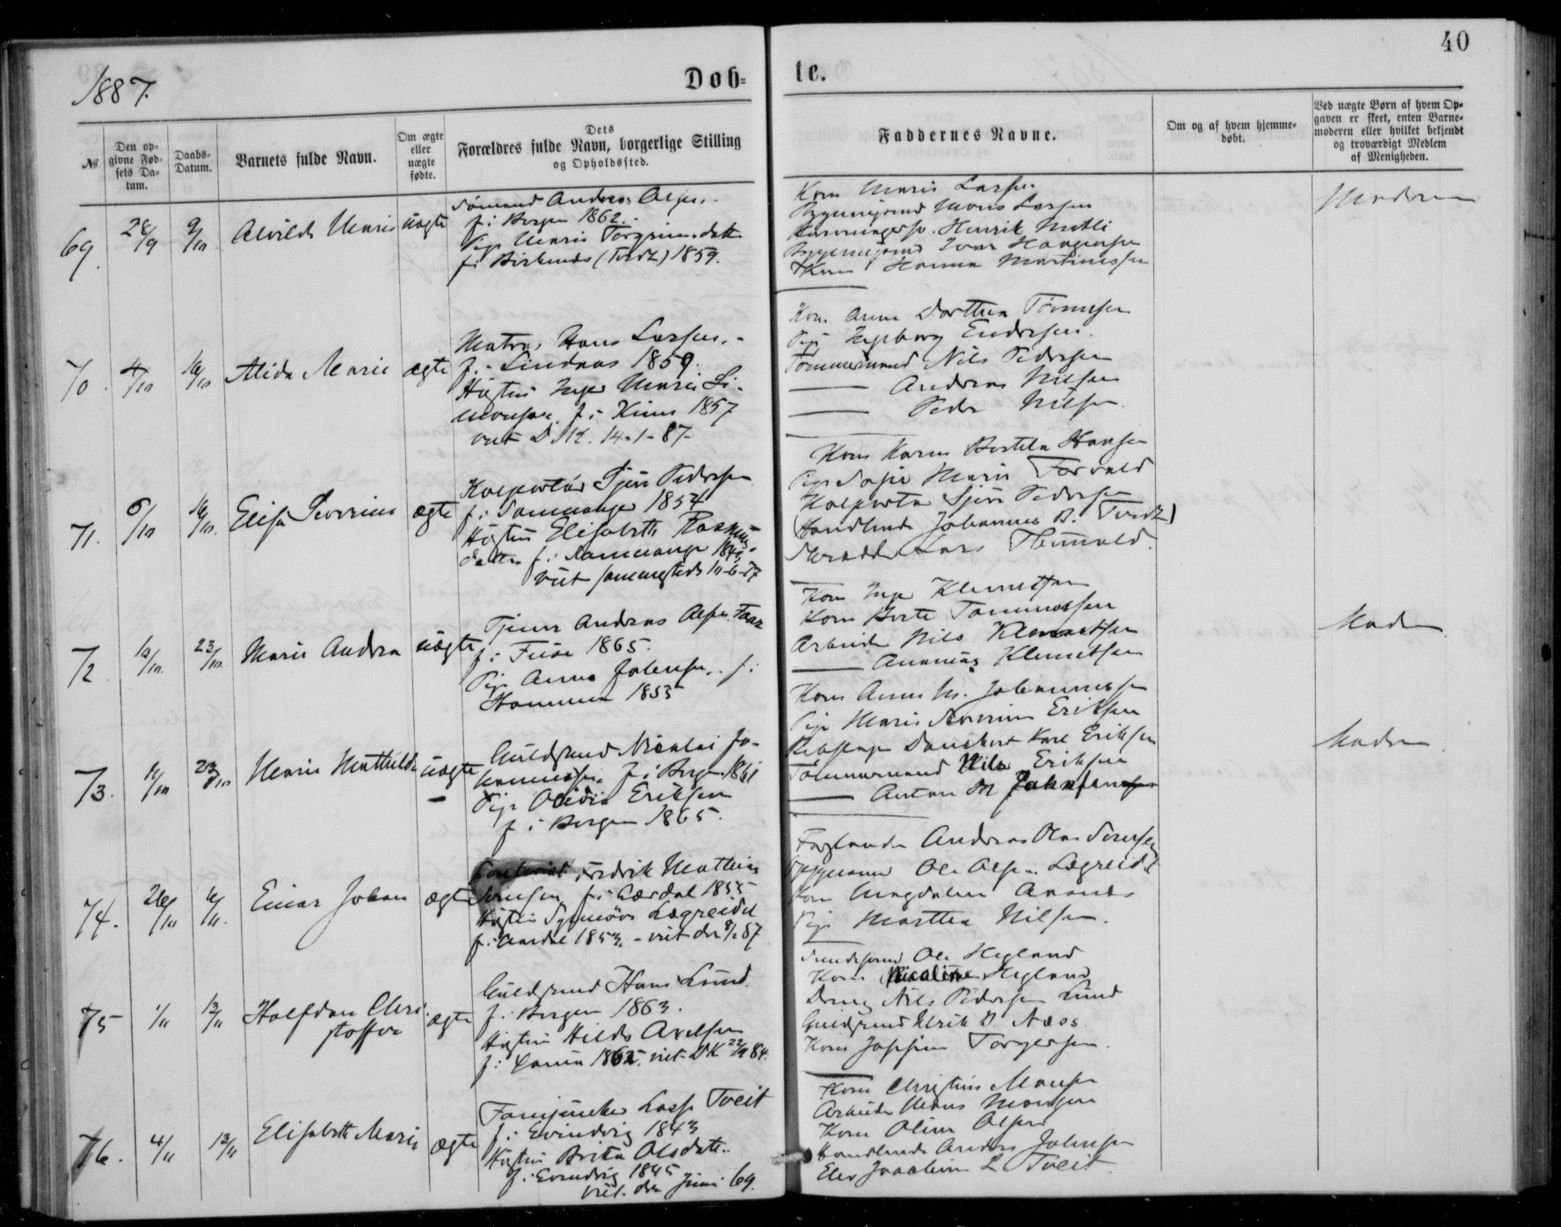 40
1887.
Døb-
te.
№
Den op-
givne Fød-
sels Da-
tum.
Daabs-
Datum.
Barnets fulde Navn.
Om ægte
eller
uægte
fødte.
Dets
Forældres fulde Navn, borgerlige Stilling
og Opholdssted.
Faddernes Navne.
Om og af hvem hjemme-
døbt.
Ved uægte Børn af hvem Op-
gaven er skeet, enten Barne-
moderen eller hvilket bekjendt
og troværdigt Medlem
af Menigheden.
69.
28/9
9/10
Alvilde Marie
uægte
Sømand Andreas Olsen.
f. i Bergen 1862.
Pige Marie Torgrimsdatt
f. i Birkenes (Tvedt) 1859.
Kone Marie Larsen.
Bygningsmd Mons Larsen
Henrik
Bygningsmd Iver
Kone Hanna Martinussen
Moderen
70.
4/10
16/10
Alida Marie
ægte
Matros Hans Larsen.
f. i Lindaas 1859.
Hustru Inger Marie Si-
monsen f. i Kinn 1857
viet D.K. 14-1-87
Kone Anna Dorthea Tønnesen
Pige Ingeborg Endresen.
Tømmermand Nils Pedersen
— Andreas Nilsen
— Peder Nilsen.
71.
6/10
16/10.
Elise Severine
ægte
Kolportør Sjur Pedersen
f. i Samnanger 1854
Hustru Elisabeth Rasmus-
datter f. i Samnanger
viet sammesteds
Kone Karen Hansen
Pige Marie
Kolportør Sjur Pedersen
Handlende Johannes B. Tvedt
Skrædder Lars
72
10/10.
23/10
Marie Andrea
uægte
Tjener Andreas Olsen
f. i Fuse 1865.
Pige Anna Johnsen. f. i
1853
Kone Inger Klemetsen
Kone Berte Tønnessen
Arbeider Nils Klemetsen
— Ananias Klemetsen
Moderen
73.
11/10
23/10
Marie Mathilde
uægte
—
Guldsmed Nicolai Jo-
hannesen f. i Bergen 1861
Pige Olidia Eriksen
f. i Bergen 1865.
Kone Anne M. Johannesen
Pige Marie Eriksen
Karl Eriksen
Tømmermand Nils Eriksen
— Anton M Johannesen
Moderen
74.
26/10
6/11.
Einar Johan
ægte
Fredrik Mathias
Sørensen f. i Lærdal 1855
Hustru Synnøve Lægreidet
f. i Aardal 1853. - viet den 9/1 87
Andreas Olai Sørensen
Ole Olsen Lægreidet
Kone Magdalene
Pige Marthea Nilsen.
75
1/11
13/11
Halfdan Chri-
stoffer
ægte
Guldsmed Hans Lund.
f. i Bergen 1863.
Hustru Hilda Axelsen
f. i 1862. viet D.K. 22/9 84.
Ole Hegland
Kone Nicoline Hegland
Dreng Nils Pedersen Lund
Guldsmed Ulrik B. Næss
Kone Josefine Torgersen.
76.
4/11
13/11
Elisabeth Marie
ægte
Lasse Tveit
f. i Evindvig 1843
Hustru Brita Olsdatt.
f. i Evindvig 1845
viet. den Juni 69.
Kone Christine Monsen
Arbeider Mons Monsen
Kone Oline Olsen
Handlende Anders Johnsen
Elev Joachim L Tveit.